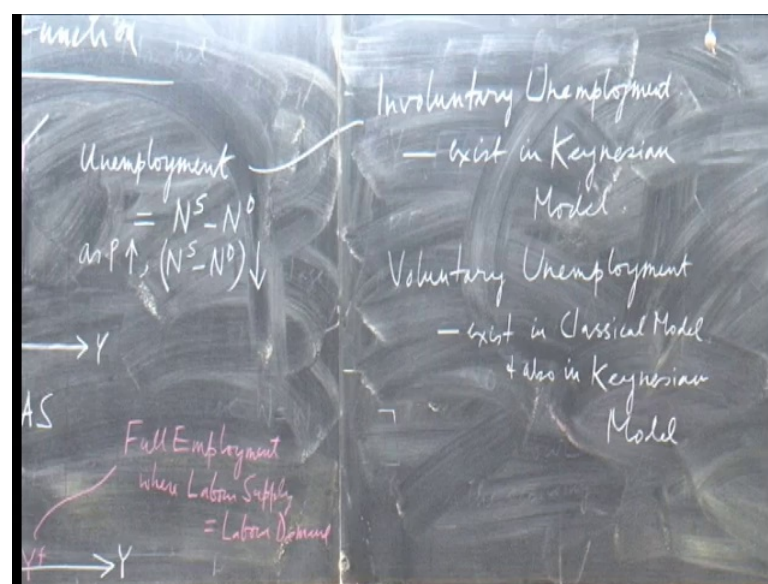 Function
Unemployment
= N^S - N^D
as P ↑, (N^S - N^D) ↓
→ Y
AS
Full Employment
where Labour Supply
= Labour Demand
Yf → Y
Involuntary Unemployment
— exist in Keynesian
Model.
Voluntary Unemployment
— exist in Classical Model
+ also in Keynesian
Model